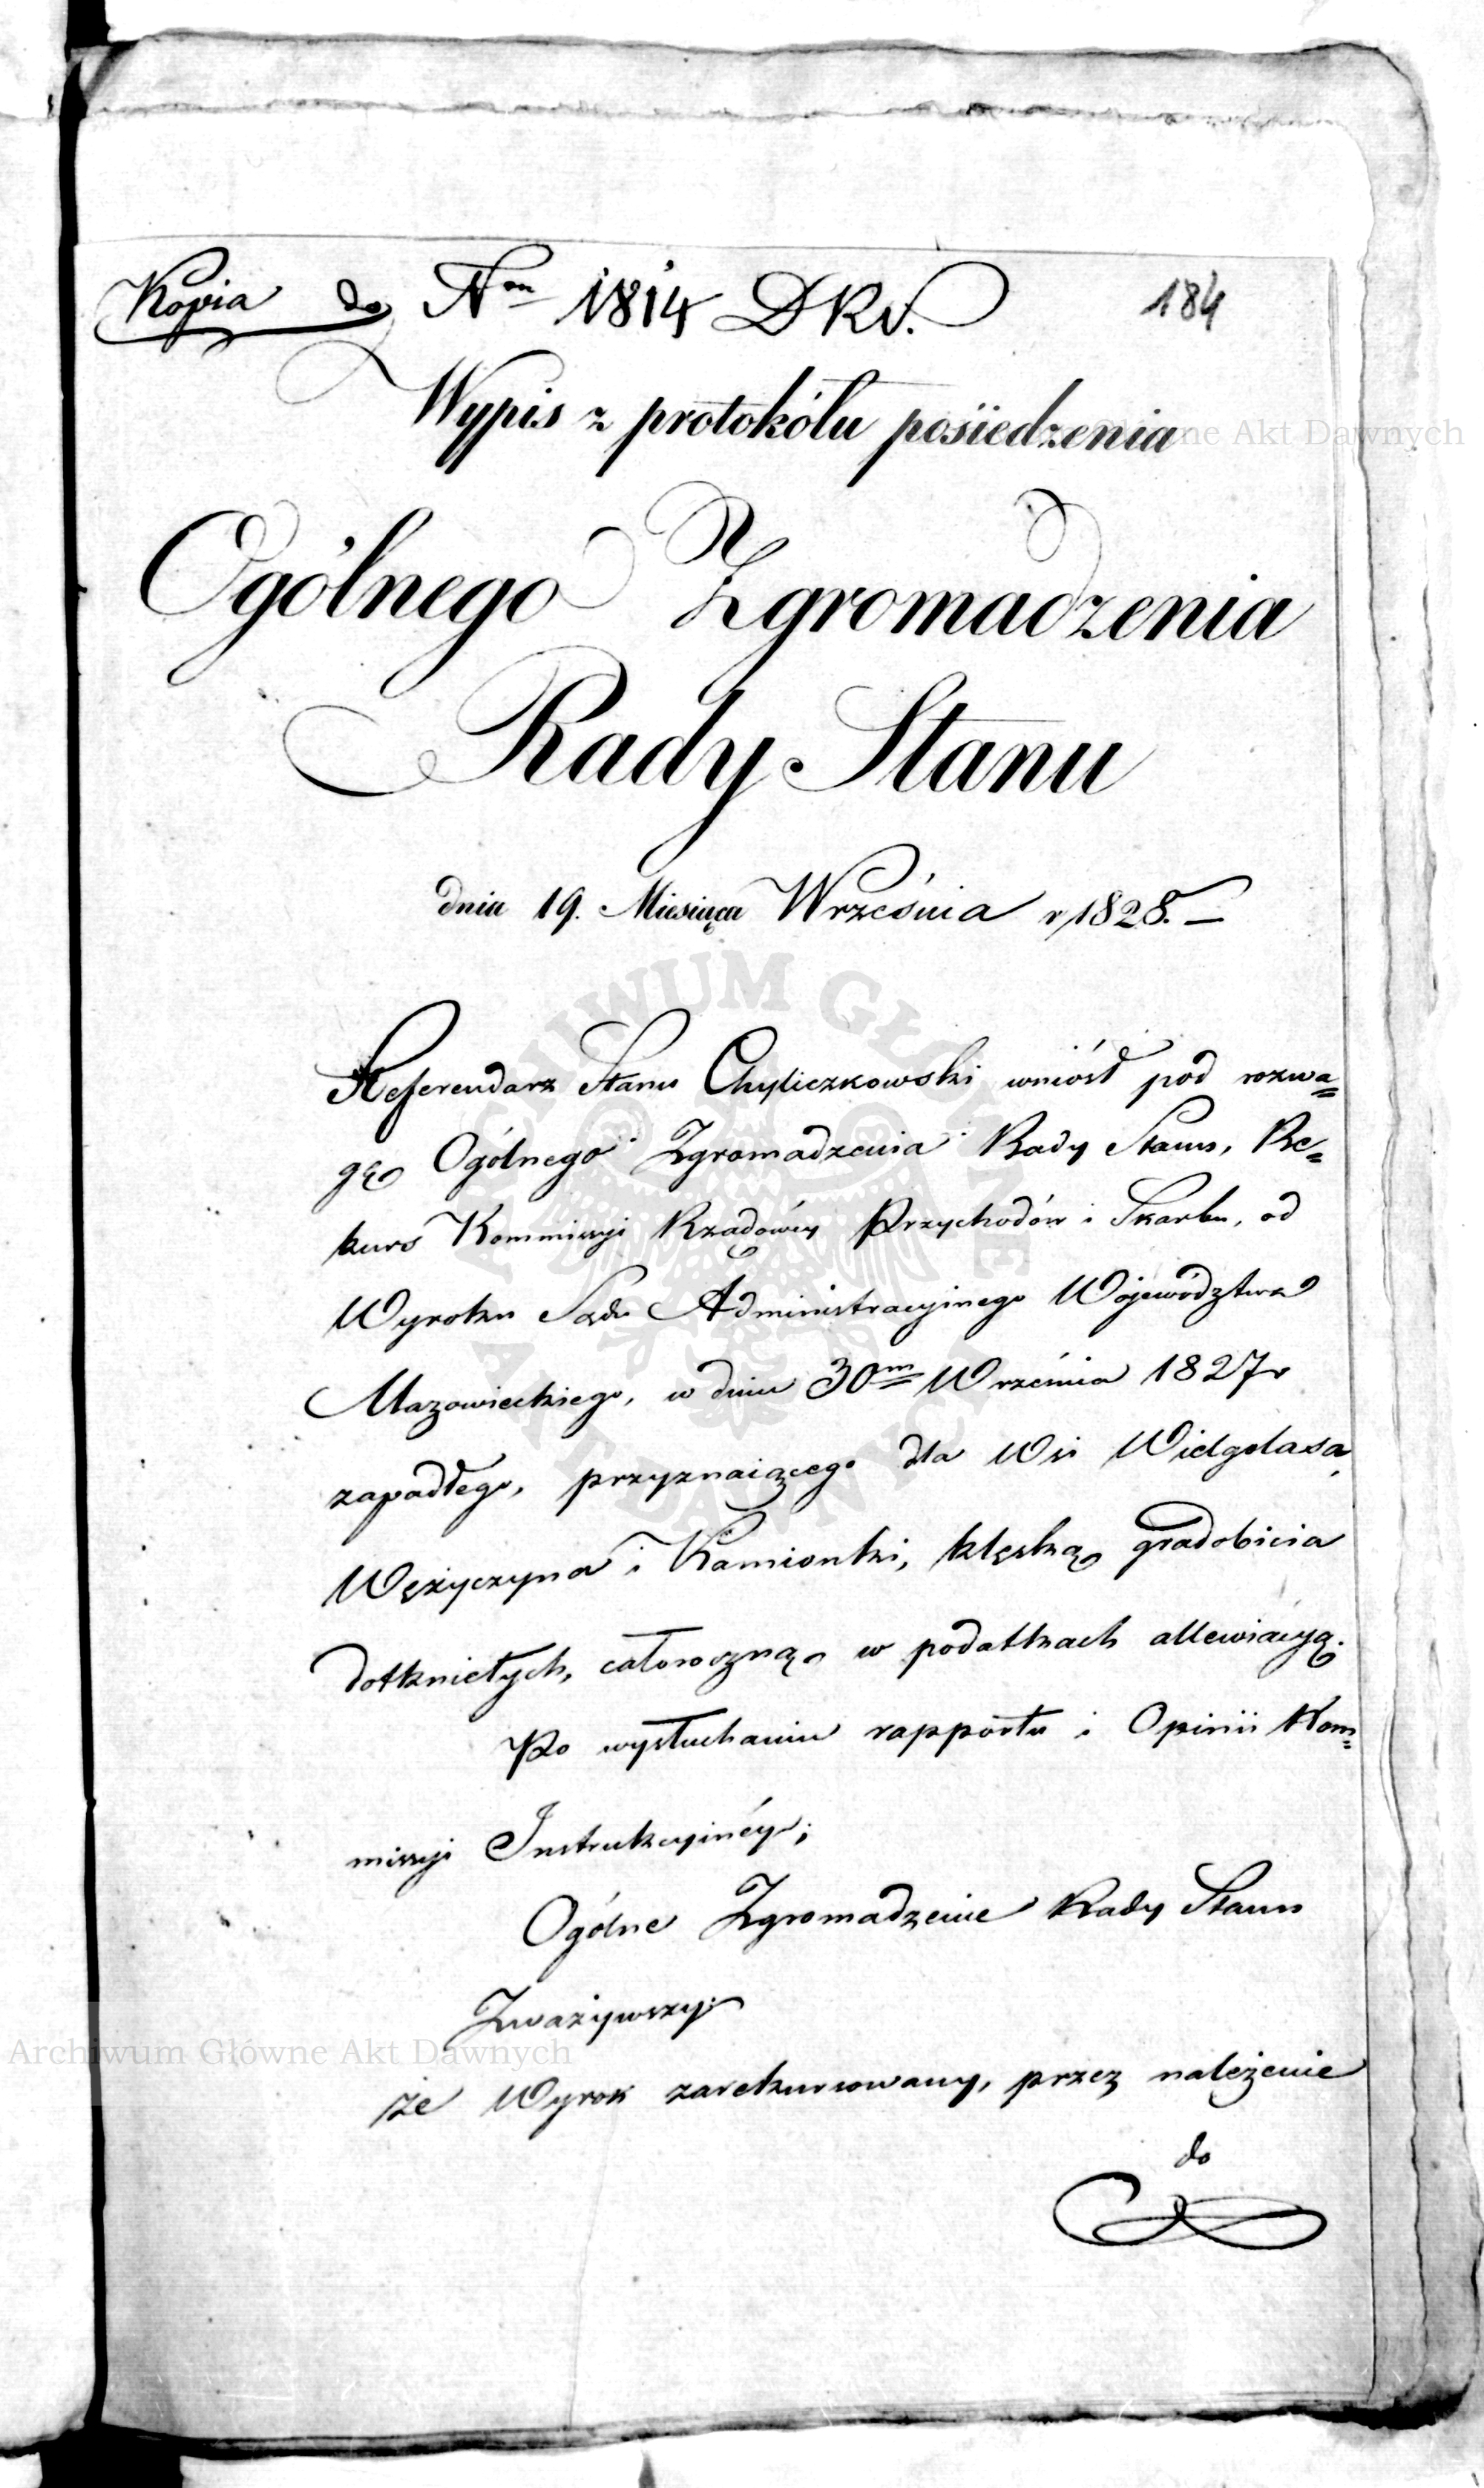 Kopia do Nru 1814 DKS. 184
Wypis z protokółu posiedzenia
Ogólnego Zgromadzenia
Rady Stanu
dnia 19. Miesiąca Września r 1828. —
Referendarz Stanu Chyliczkowski wniósł pod rozwa=
gę Ogólnego Zgromadzenia Rady Stanu, Re=
kurs Kommissyi Rządowéy Przychodów i Skarbu, od
Wyroku Sądu Administracyinego Województwa
Mazowieckiego, w dniu 30m Września 1827 r
zapadłego, przyznaiącego dla Wsi Wielgolasa,
Wężyczyna i Kamionki, klęską gradobicia
dotkniętych, całoroczną w podatkach allewiacyą.
Po wysłuchaniu rapportu i Opinii Kom=
missyi Instrukcyinéy;
Ogólne Zgromadzenie Rady Stanu
Zważywszy:
że Wyrok zarekursowany, przez należenie
do
Archiwum Główne Akt Dawnych
ARCHIWUM GŁÓWNE
AKT DAWNYCH
ne Akt Dawnych